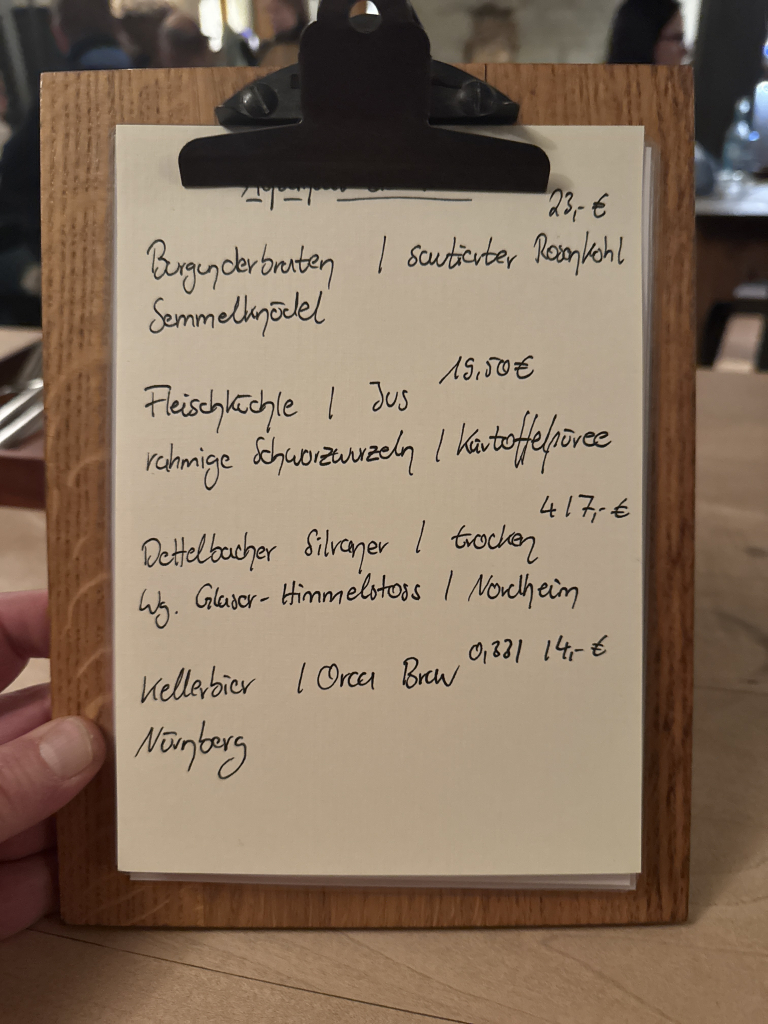 23,- €
Burgunderbraten | sautierter Rosenkohl
Semmelknödel
19,50 €
Fleischküchle | Jus
rahmige Schwarzwurzeln | Kartoffelpüree
4 / 7,- €
Dettelbacher Silvaner / trocken
Wg. Glaser-Himmelstoss / Nordheim
0,33l / 4,- €
Kellerbier / Orca Brau
Nürnberg